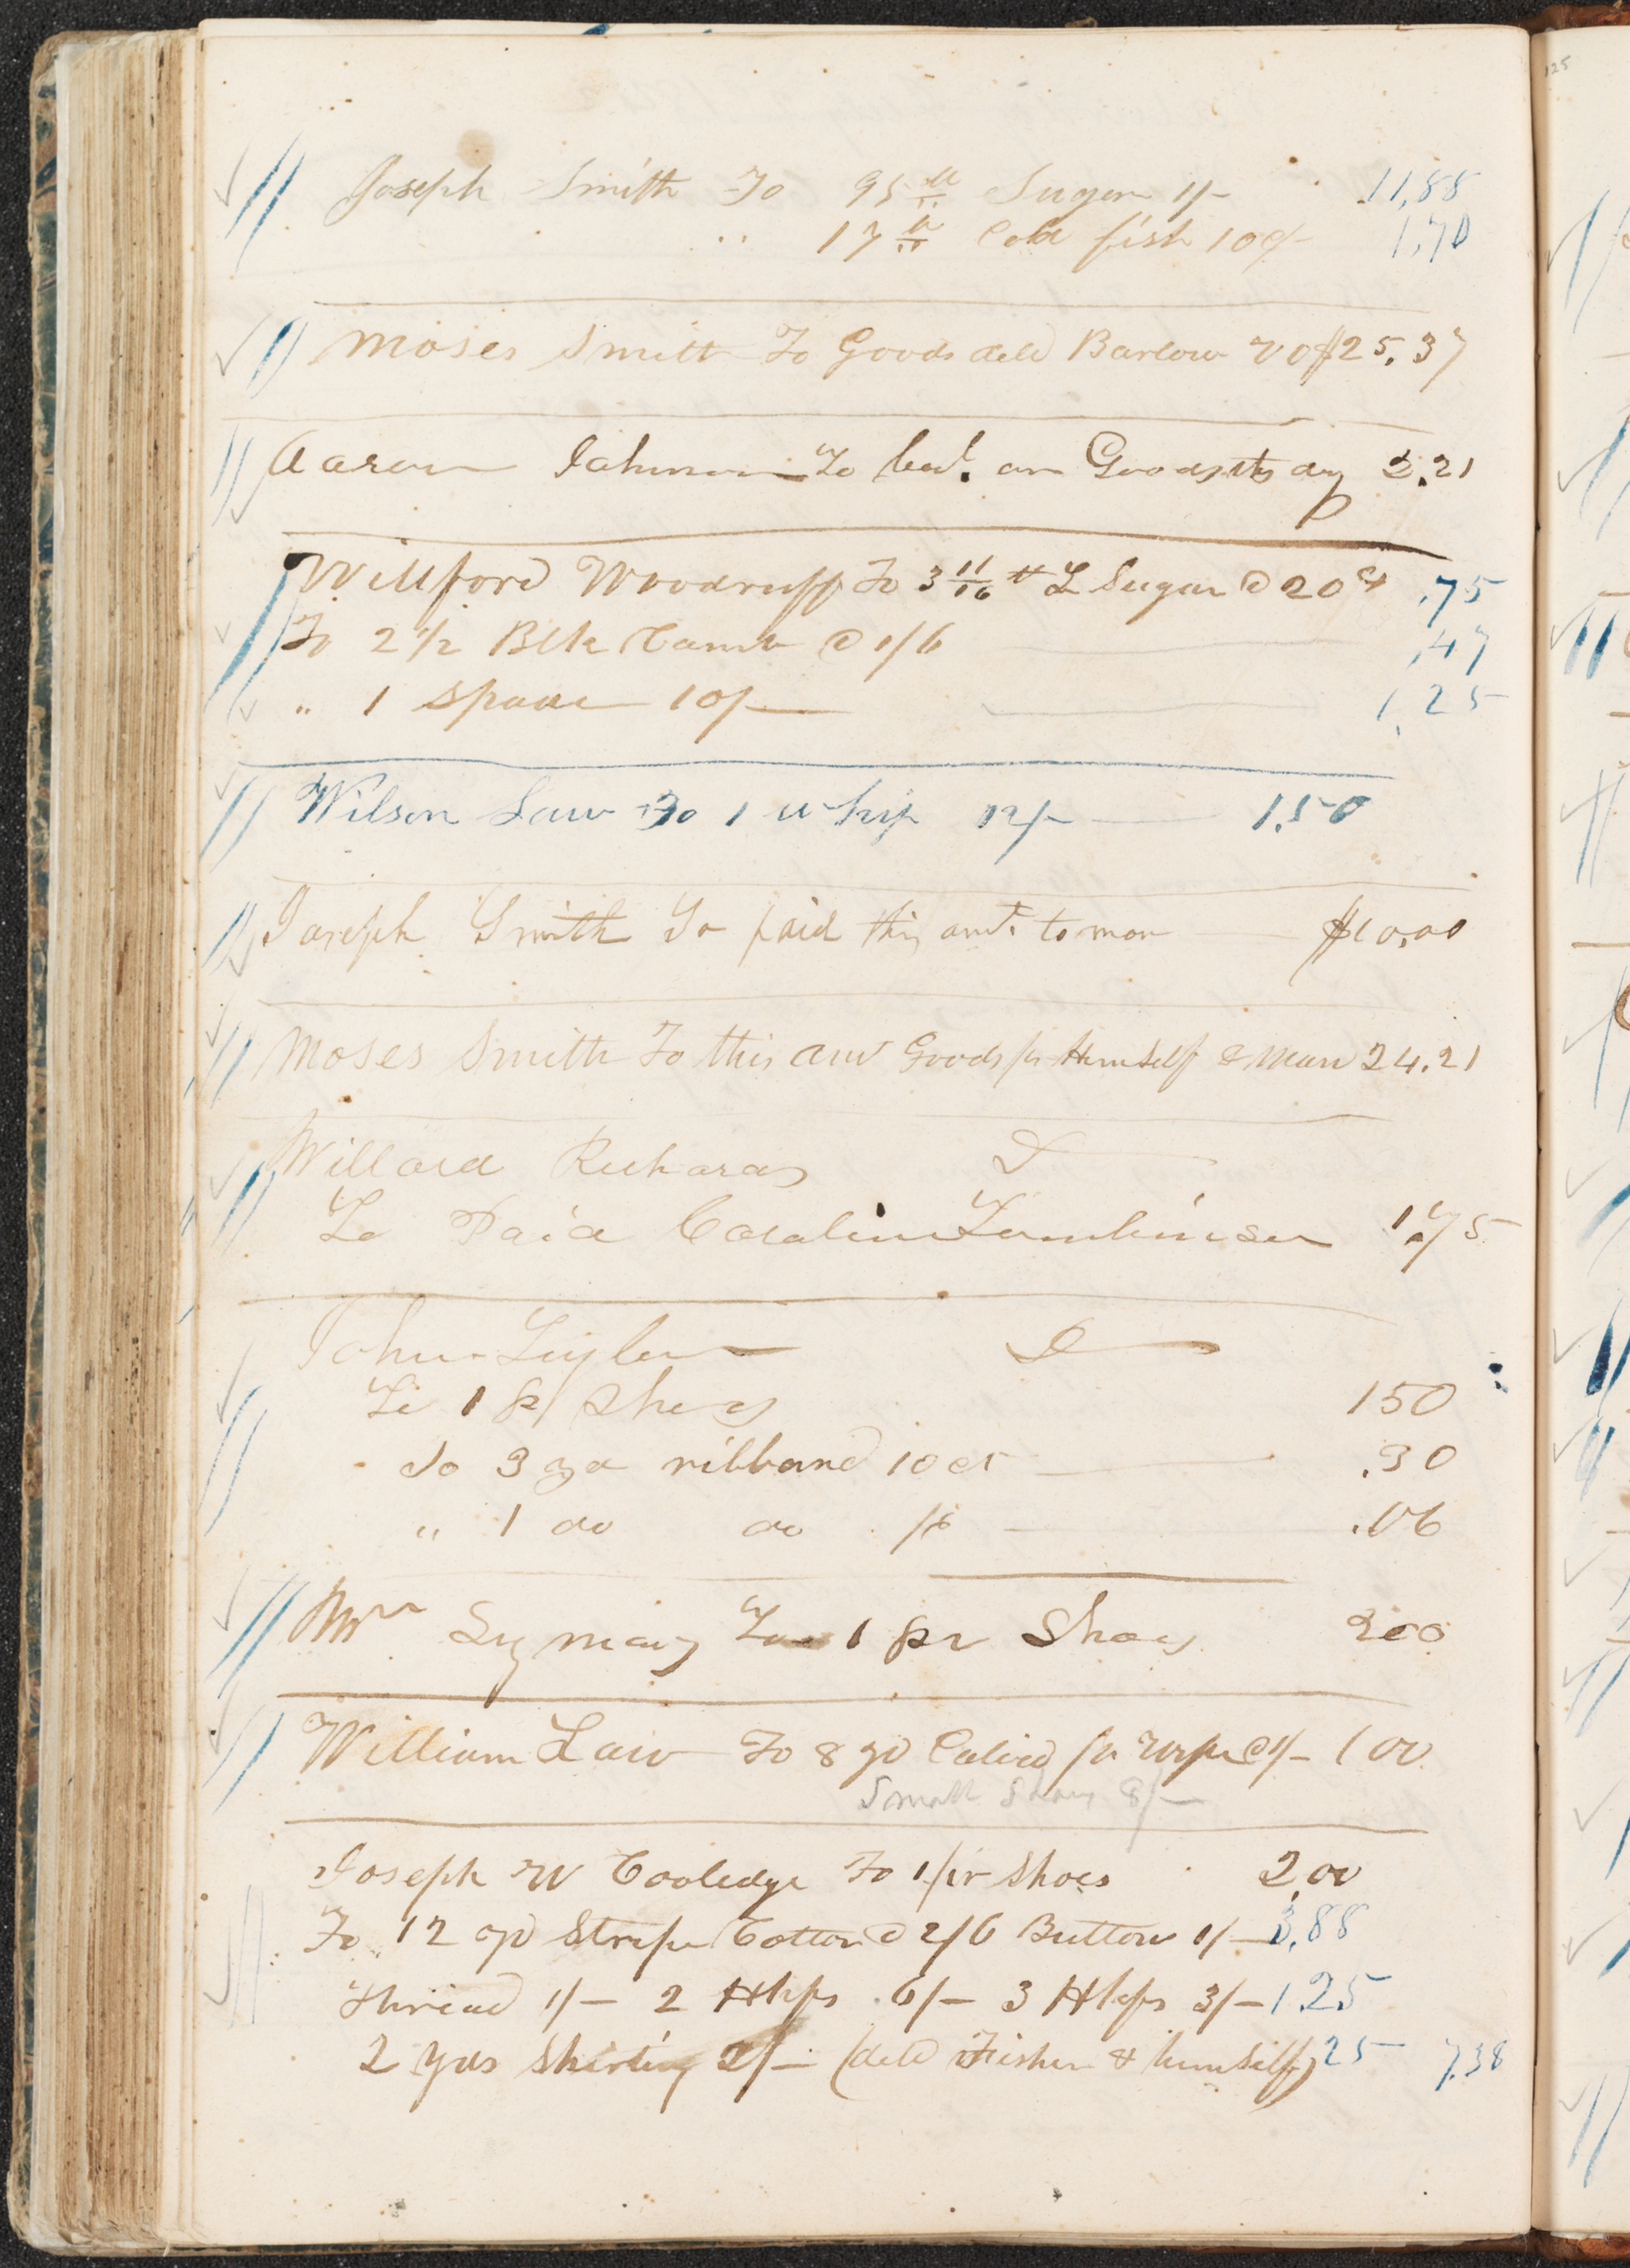 Joseph Smith To 95 lb Sugar 1/- 11,88
" 17 lb Cod fish 10c/- 1,70
Moses Smith To Goods deld Barlow $25.37
Aaron Johnson To bal. on Goods this day 2.21
Willford Woodruff To 3 11/16 # L Sugar @ 20c .75
To 2 1/2 Blk Camb @ 1/6 ,47
" 1 spade 10/- 1,25
Wilson Law To 1 whip 12/- 1.50
Joseph Smith To paid this amt. to man $10,00
Moses Smith To this am Goods for Himself & Man 24.21
Willard Richards D
To Paid Caroline Tomlinson 1.75
John Taylor D
To 1 pr Shoes 150
To 3 yd ribband 10 cts .30
" 1 do do /6 .06
Mrs To 1 pr Shoes 200
William Law To 8 yd Calico for Wife @ 1/- 1 00
Small Shoes 8/-
Joseph W Cooledge To 1 pr Shoes 2,00
To 12 yd Stripe Cotton @ 2/6 Button 1/- 3,88
Thread 1/- 2 Hkfs 6/- 3 Hkfs 3/- 1.25
2 yds Shirting 2/- (deld Fisher & himself) 25 7.38
125